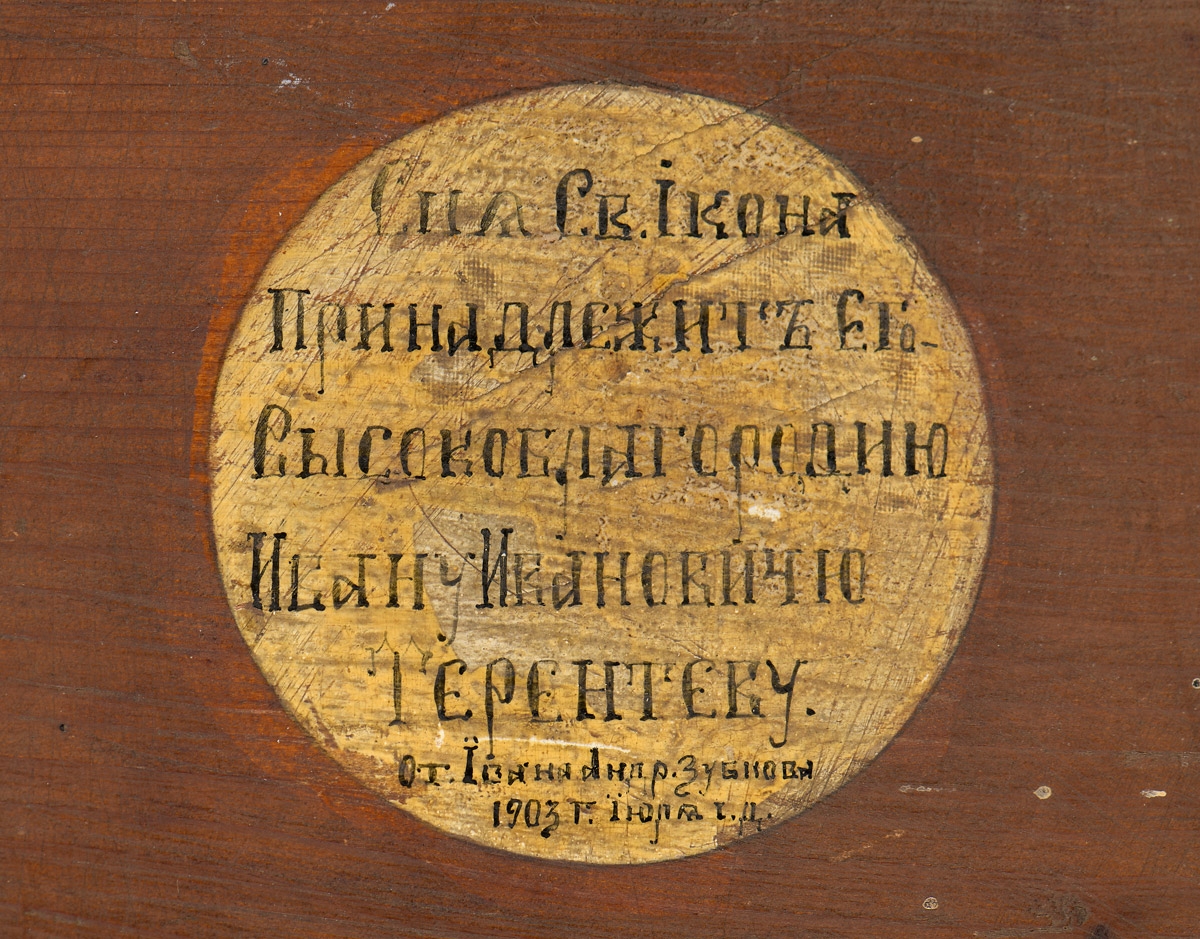 Сиѧ Св. Iкона
Принадлежитъ Его-
Высокоблагородию
Ивану Ивановичю
Терентеву.
От. Ївана Андр. Зубкова
1903 г. Їюлѧ 1. д.